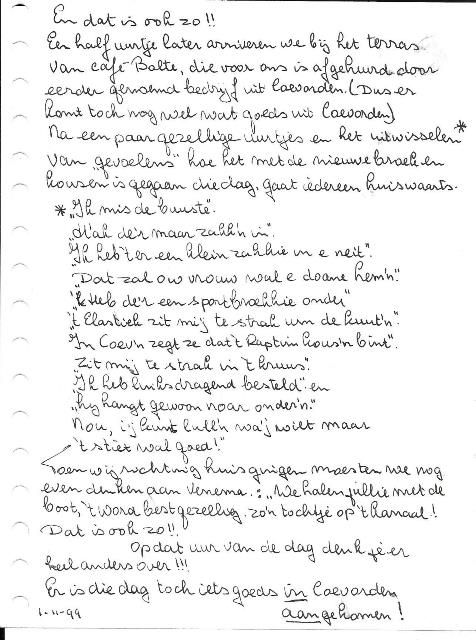 En dat is ook zo!!
Een half uurtje later arriveren we bij het terras
van café Bolte, die voor ons is afgehuurd door
eerder genoemd bedrijf uit Coevorden. (Dus er
komt toch nog wel wat goeds uit Coevorden)
Na een paar gezellige uurtjes en het uitwisselen*
van "gevoelens" hoe het met de nieuwe broek en
kousen is gegaan die dag, gaat iedereen huiswaarts.
* "Ik mis de buuste".
"Had de'r maar zakk'n in".
"Ik heb 't er een klein zakkie in e neit".
"Dat zal ow vrouw wal e doane hem'n".
"'k Heb de'r een sportbroekkie onder"
"'t Elastiek zit mij te strak um de kuut'n".
"In Coev'n zegt ze dat 't Raptim kous'n bint".
"Zit mij te strak in 't kruus".
"Ik heb linksdragend besteld" en
"hij hangt gewoon noar onder'n."
Nou, ij kunt lull'n wa'j wilt maar
't stiet wal goed!"
Toen wij richting huis gingen moesten we nog
even denken aan Venema.: "We halen jullie met de
boot, 't word best gezellig, zo'n tochtje op 't kanaal!
Dat is ook zo!!.
Op dat uur van de dag denk je er
heel anders over!!!
Er is die dag toch iets goeds in Coevorden
aangekomen!
1-11-99